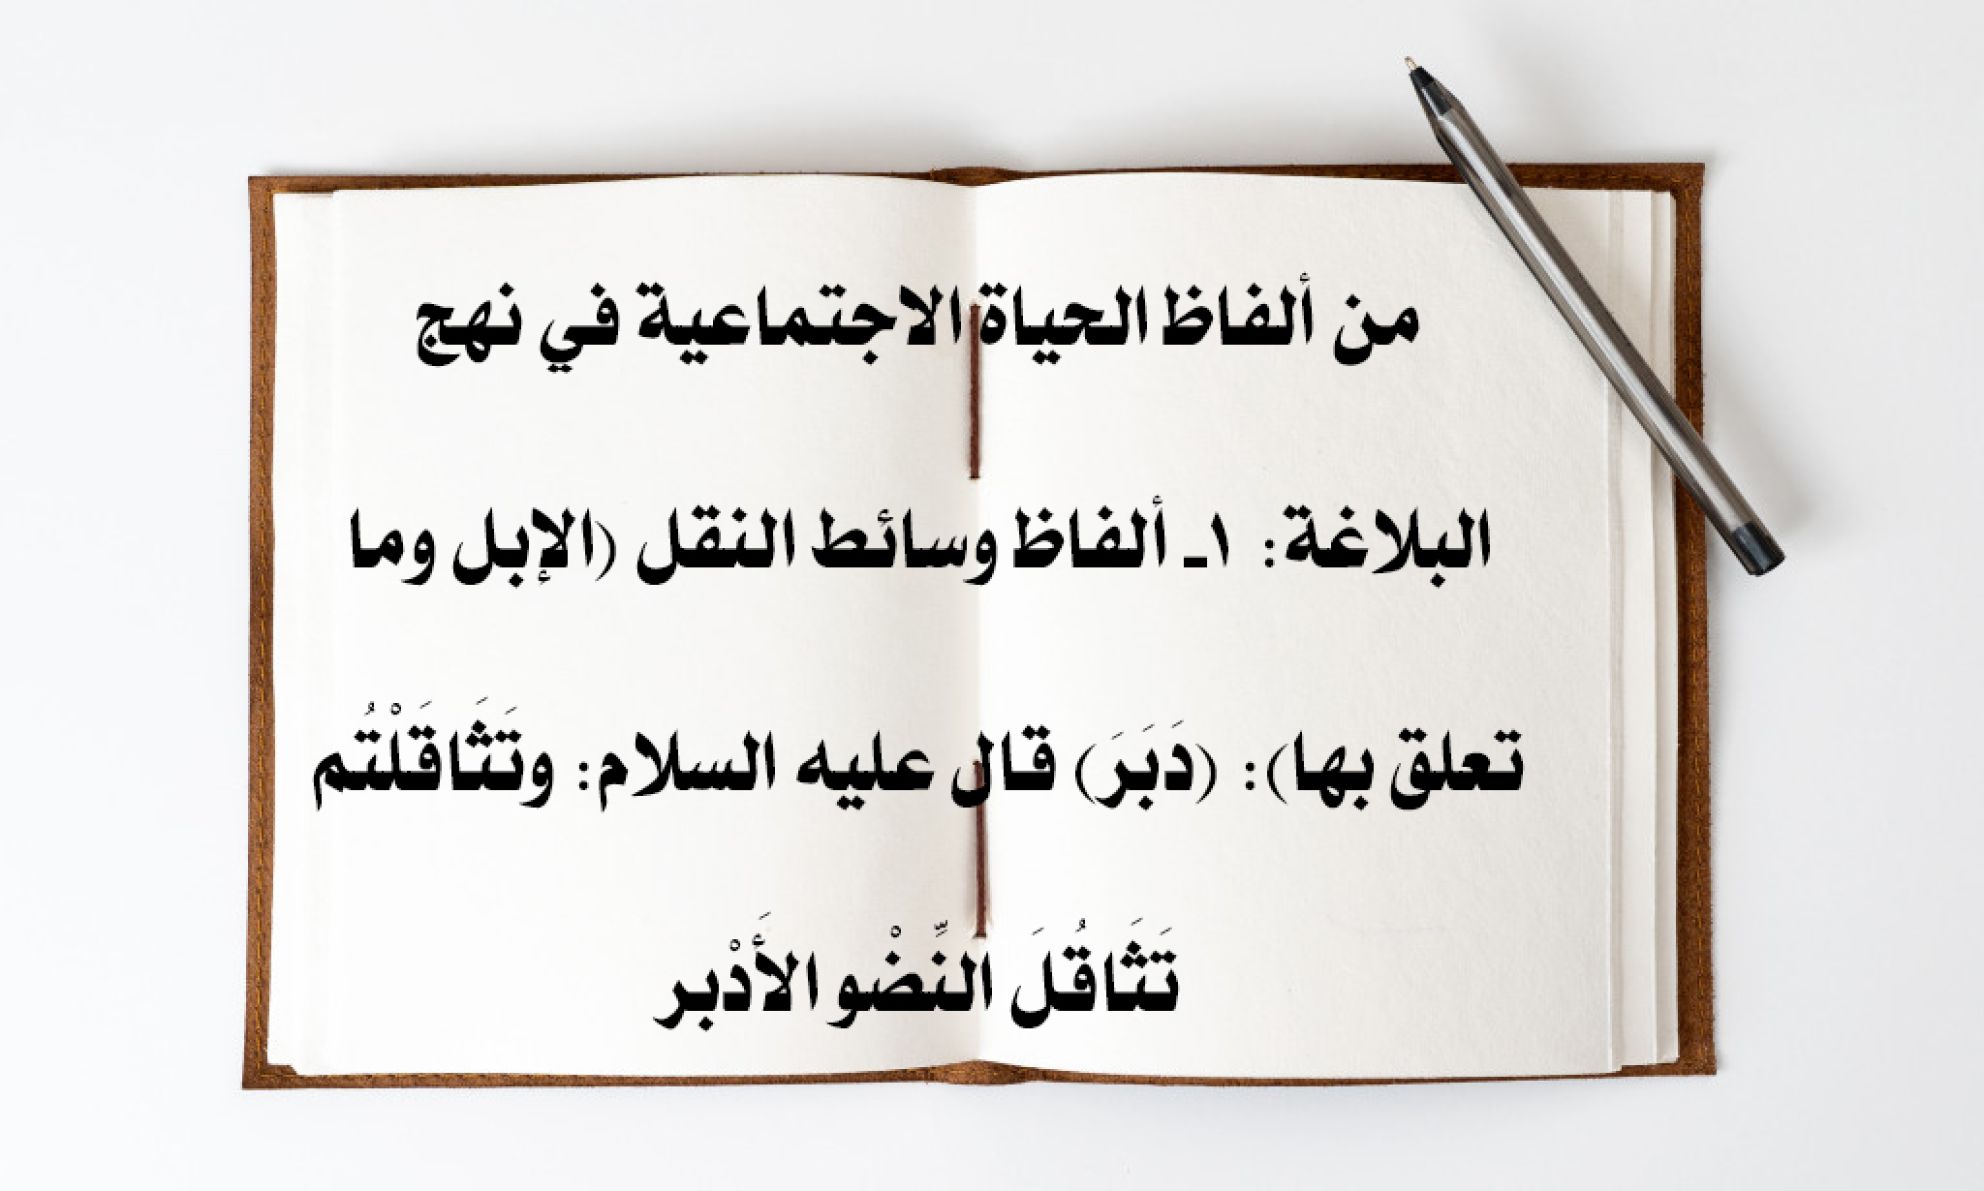 من ألفاظ الحياة الاجتماعية في نهج
البلاغة: ١ـ ألفاظ وسائط النقل (الإبل وما
تعلق بها): (دَبَرَ) قال عليه السلام: وتَثَاقَلْتُم
تَثَاقُلَ النِّضْو الأَدْبر